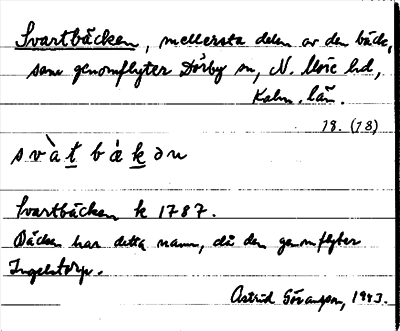 Svartbäcken, mellersta delen av den bäck,
som genomflyter Dörby sn, N. Möre hd,
Kalm. län.
18. (18)
s v à t b ȧ k ə n
Svartbäcken k 1787.
Bäcken har detta namn, då den genomflyter
Ingelstorp.
Astrid Göransson, 1943.